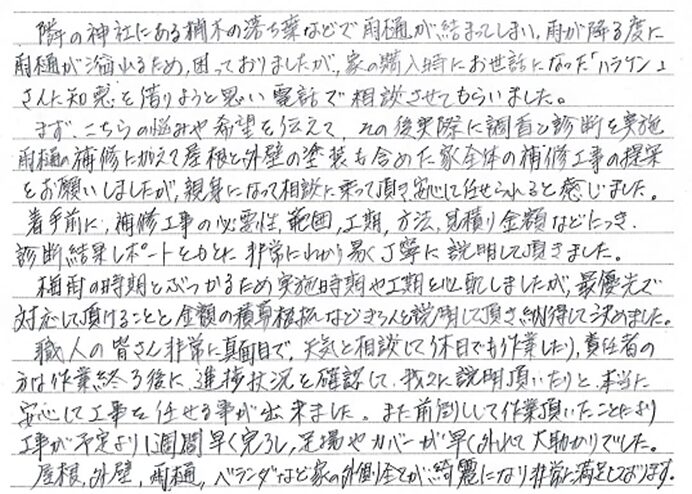 隣の神社にある樹木の落ち葉などで雨樋が詰まってしまい、雨が降る度に
雨樋が溢れるため、困っておりましたが、家の購入時にお世話になった「ハラケン」
さんに知恵を借りようと思い電話で相談させてもらいました。
まず、こちらの悩みや希望を伝えて、その後実際に調査と診断を実施
雨樋の補修に加えて屋根と外壁の塗装も含めた家全体の補修工事の提案
をお願いしましたが、親身になって相談に乗って頂き、安心して任せられると感じました。
着手前に、補修工事の必要性、範囲、工期、方法、見積り金額などにつき、
診断結果レポートをもとに非常にわかり易く丁寧に説明して頂きました。
梅雨の時期とぶつかるため実施時期や工期を心配しましたが、最優先で
対応して頂けることと金額の積算根拠などきちんと説明して頂き納得して決めました。
職人の皆さん非常に真面目で、天気と相談して休日でも作業したり、責任者の
方は作業終了後に、進捗状況を確認して、我々に説明頂いたりと、本当に
安心して工事を任せる事が出来ました。また前倒しして作業頂いたことにより
工事が予定より1週間早く完了し、足場やカバーが早く外れて大助かりでした。
屋根、外壁、雨樋、ベランダなど家の外側全てが綺麗になり非常に満足しております。